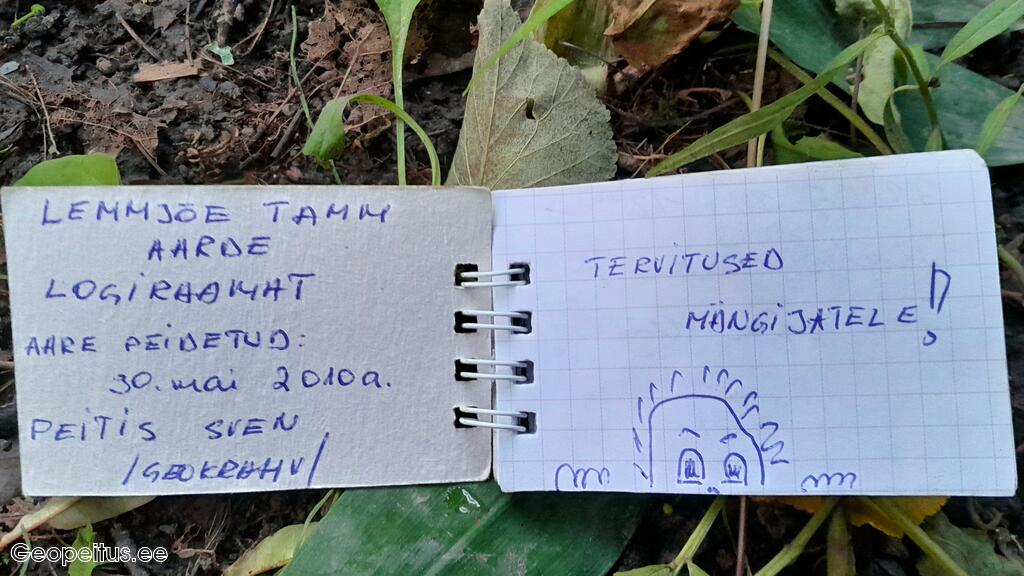 LEMMJÕE TAMM
AARDE
LOGIRAAMAT
AARE PEIDETUD:
30. mai 2010a.
PEITIS SVEN
/GEOKRAHV/
TERVITUSED
MÄNGIJATELE!
Geopeitus.ee